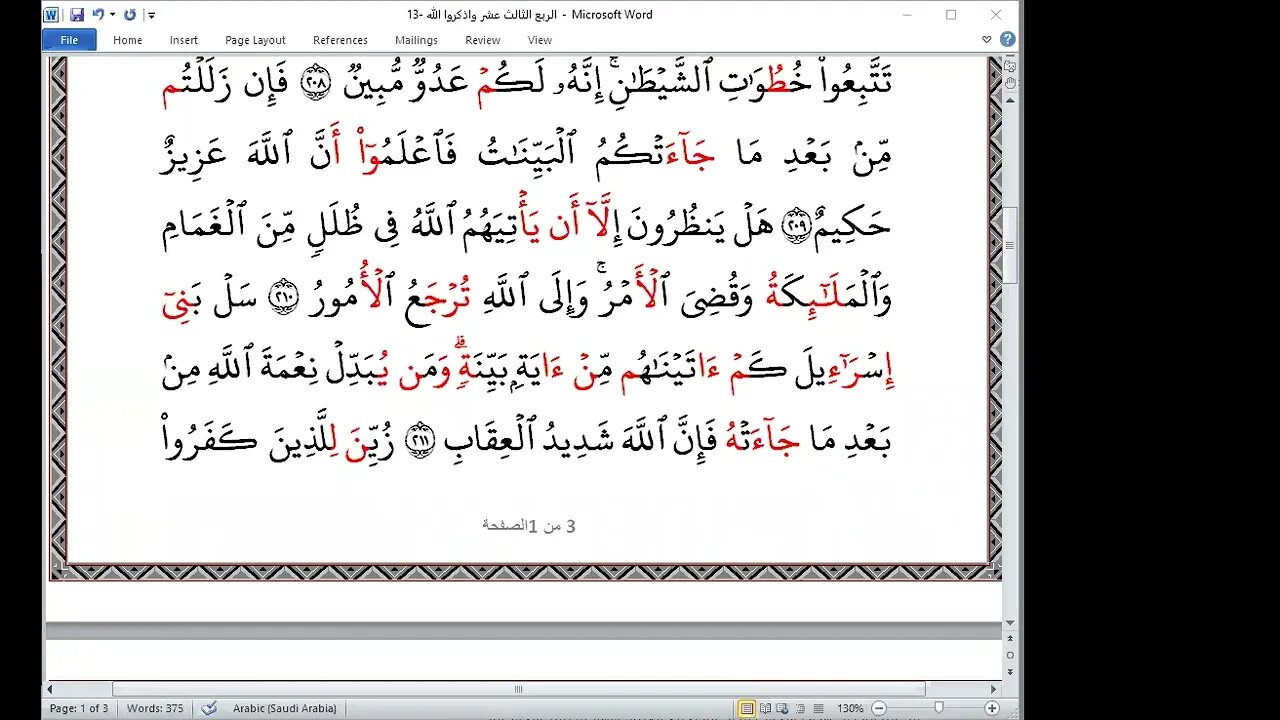 13- الربع الثالث عشر واذكروا الله - Microsoft Word
File Home Insert Page Layout References Mailings Review View
تَتَّبِعُواْ خُطُوَٰتِ ٱلشَّيْطَٰنِۚ إِنَّهُۥ لَكُمْ عَدُوٌّ مُّبِينٌ ٢٠٨ فَإِن زَلَلْتُم
مِّنۢ بَعْدِ مَا جَآءَتْكُمُ ٱلْبَيِّنَٰتُ فَٱعْلَمُوٓاْ أَنَّ ٱللَّهَ عَزِيزٌ
حَكِيمٌ ٢٠٩ هَلْ يَنظُرُونَ إِلَّآ أَن يَأْتِيَهُمُ ٱللَّهُ فِى ظُلَلٍ مِّنَ ٱلْغَمَامِ
وَٱلْمَلَٰٓئِكَةُ وَقُضِىَ ٱلْأَمْرُۚ وَإِلَى ٱللَّهِ تُرْجَعُ ٱلْأُمُورُ ٢١٠ سَلْ بَنِىٓ
إِسْرَٰٓءِيلَ كَمْ ءَاتَيْنَٰهُم مِّنْ ءَايَةٍۭ بَيِّنَةٍۗ وَمَن يُبَدِّلْ نِعْمَةَ ٱللَّهِ مِنۢ
بَعْدِ مَا جَآءَتْهُ فَإِنَّ ٱللَّهَ شَدِيدُ ٱلْعِقَابِ ٢١١ زُيِّنَ لِلَّذِينَ كَفَرُواْ
3 من 1الصفحة
Page: 1 of 3 Words: 375 Arabic (Saudi Arabia) 130%